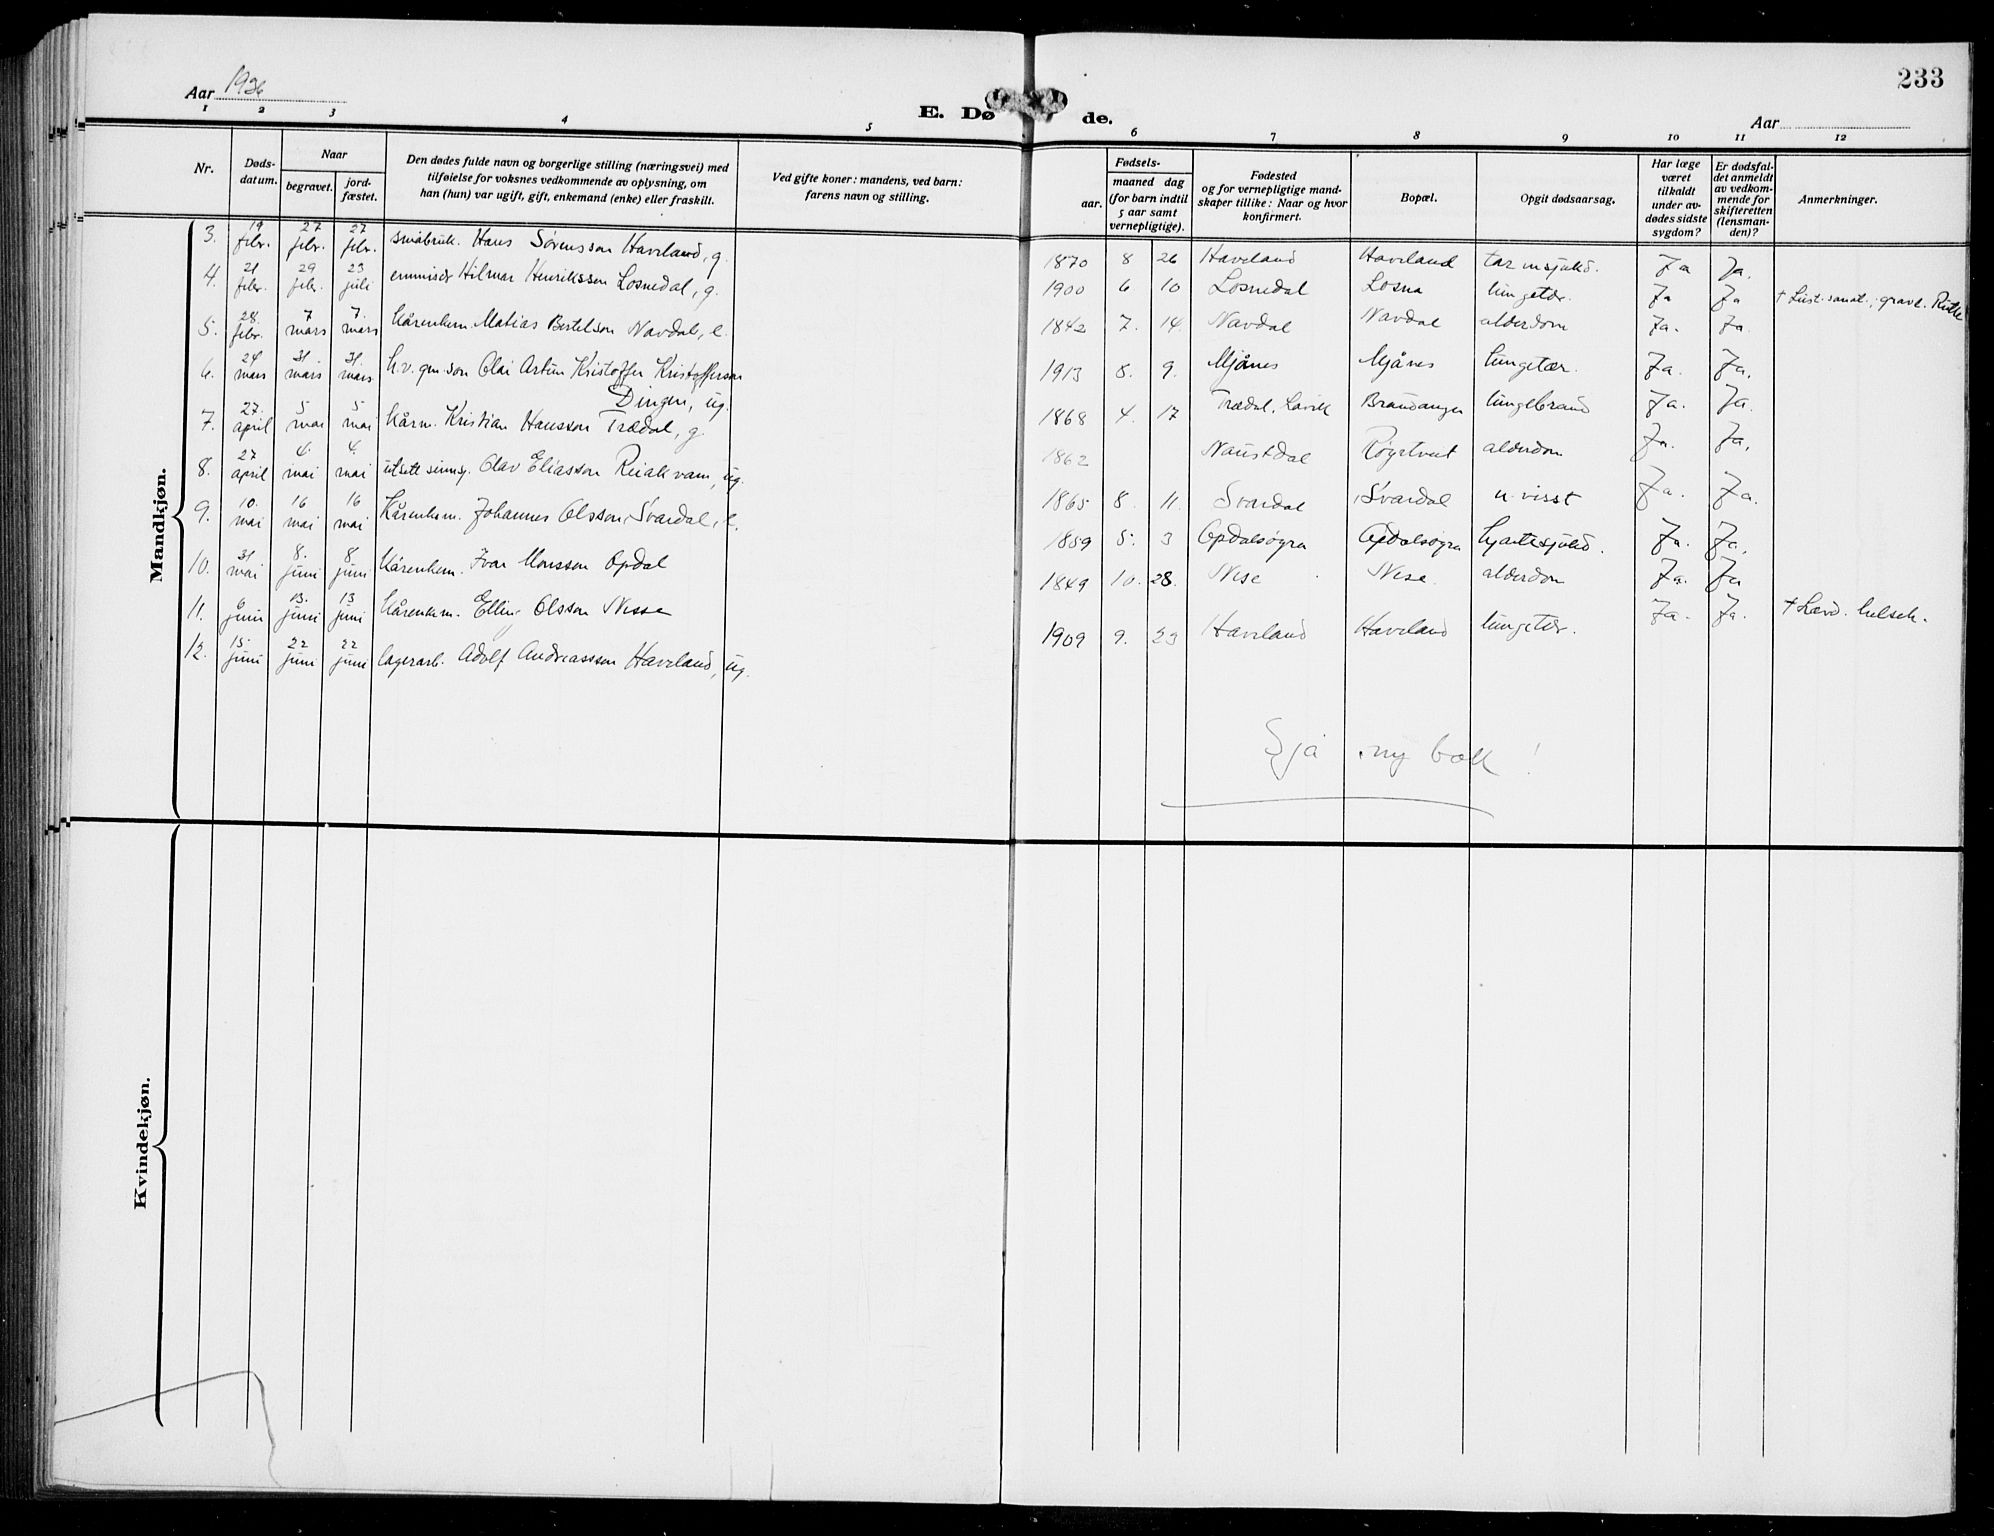 233
Aar 1936
E. Dø de.
Aar
1 2 3 4 5 6 7 8 9 10 11 12
Nr.
Døds-
datum.
Naar
begravet.
jord-
fæstet.
Den dødes fulde navn og borgerlige stilling (næringsvei) med
tilføielse for voksnes vedkommende av oplysning, om
han (hun) var ugift, gift, enkemand (enke) eller fraskilt.
Ved gifte koner: mandens, ved barn:
farens navn og stilling.
Fødsels-
aar.
maaned dag
(for barn indtil
5 aar samt
vernepligtige).
Fødested
og for vernepligtige mand-
skaper tillike: Naar og hvor
konfirmert.
Bopæl.
Opgit dødsaarsag.
Har læge
været
tilkaldt
under av-
dødes sidste
sygdom?
Er dødsfal-
det anmeldt
av vedkom-
mende for
skifteretten
(lensman-
den)?
Anmerkninger.
Mandkjøn.
3. 19 febr. 27 febr. 27 febr. småbruk. Hans Sørensson Haveland, g. 1870 8 26 Haveland Haveland tarmsjukd. Ja Ja.
4. 21 febr. 29 febr. 23 juli Hilmar Henriksson Losnedal, g. 1900 6 10 Losnedal Losna lungetær. Ja Ja † Lust. sanat., gravl.
5. 28. febr. 7 mars 7. mars kårenkem. Matias Bertelson Navdal, e. 1842 7. 14. Navdal Navdal alderdom Ja. Ja.
6. 24 mars 31 mars 31. mars h.v. gm. son Olai Artur Kristoffer Kristofferson
Dingen, ug. 1913 8. 9. Mjånes Mjånes lungetær. Ja. Ja.
7. 27. april 5 mai 5 mai kårm. Kristian Hansson Trædal, g. 1868 4. 17 Trædal, Lavik Brandanger lungebrand Ja. Ja.
8. 27 april 4. mai 4. mai utsett sinnsj. Olav Eliasson Reiakvam, ug. 1862 Naustdal Røystveit alderdom Ja. Ja.
9. 10. mai 16 mai 16 mai Kårenkem. Johannes Olsson Svardal, e. 1865 8. 11. Svardal Svardal u. visst Ja. Ja.
10. 31 mai 8. juni 8 juni Kårenkem. Ivar Monsson Opdal 1859 5. 3 Opdalsøyra Opdalsøyra hjartesjukd. Ja. Ja.
11. 6 juni 13. juni 13 juni kårenkm. Elling Olsson Nesse 1849 10. 28. Nese Nese. alderdom Ja. Ja
12. 15. juni 22 juni 22 juni lagerarb. Adolf Andreasson Haveland, ug. 1909 9. 23 Haveland Haveland lungetær. Ja. Ja. † Lærd. helseh.
Sjå ny bok!
Kvindekjøn.